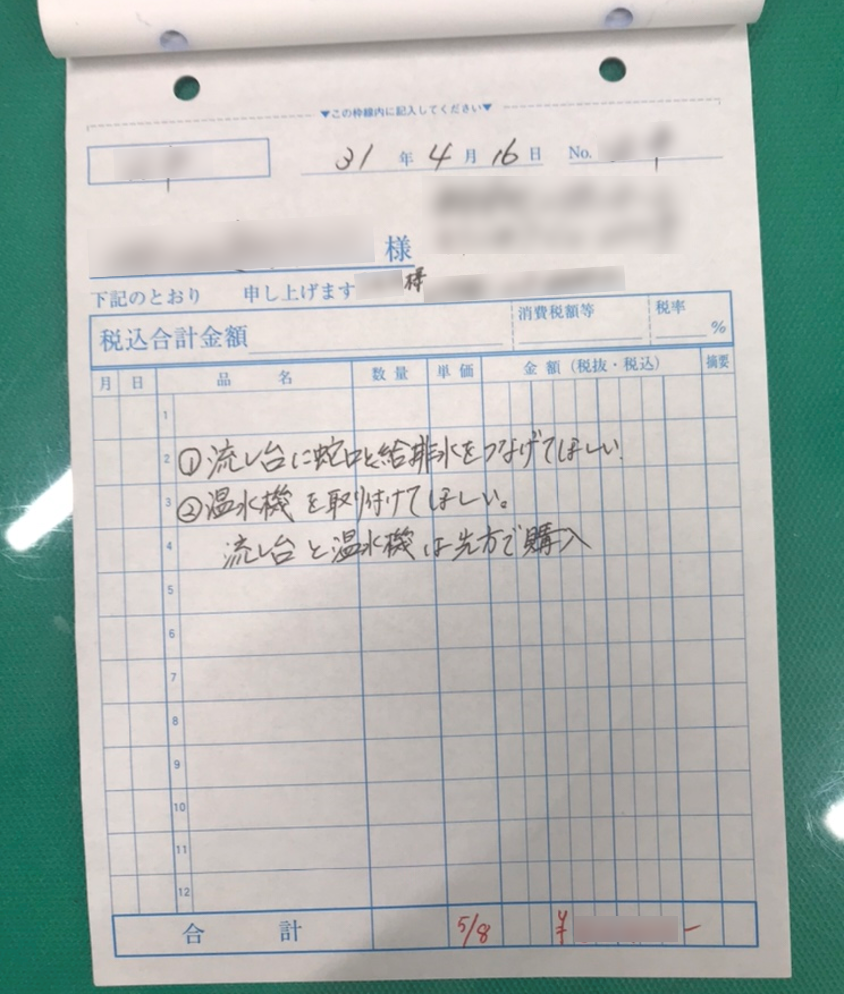 ▼この枠線内に記入してください▼
31年4月16日 No.
様
下記のとおり 申し上げます 様
税込合計金額 消費税額等 税率 %
月 日 品名 数量 単価 金額(税抜・税込) 摘要
1
2 ①流し台に蛇口と給排水をつなげてほしい.
3 ②温水機を取り付けてほしい。
4 流し台と温水機は先方で購入
5
6
7
8
9
10
11
12
合計 5/8 ¥ -